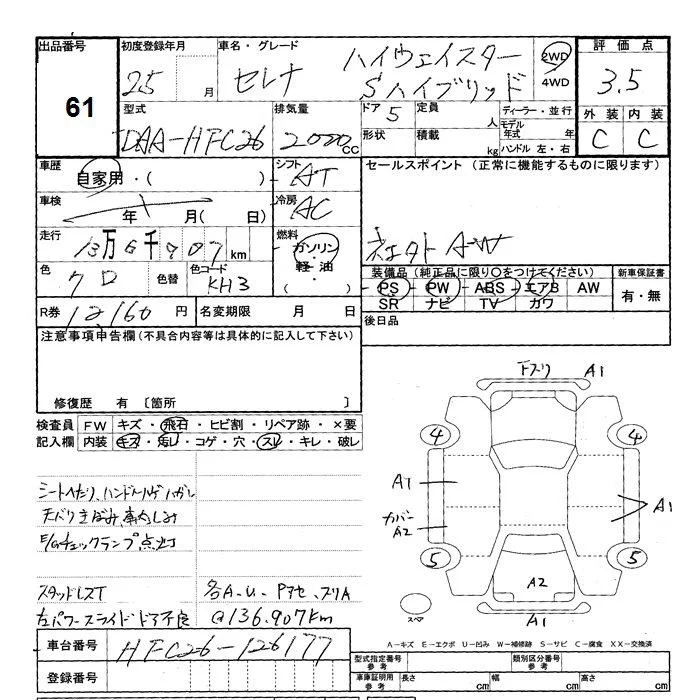 出品番号
61
初度登録年月
25 月
車名・グレード
セレナ ハイウェイスター
Sハイブリッド
2WD
4WD
評価点
3.5
外装 内装
C C
型式
DAA-HFC26
排気量
2000 CC
ドア 5
形状
定員 人
積載 kg
ディーラー・並行
モデル年式 年
ハンドル 左・右
車歴
自家用・( )
車検
年 月( 日)
走行
13万6千907 km
色
クロ
色替
色コード
KH3
シフト
AT
冷房
AC
燃料
ガソリン・
軽・油
・( )
セールスポイント (正常に機能するものに限ります)
AW
装備品 (純正品に限り○をつけてください)
PS・PW・ABS・エアB AW
SR ナビ TV カワ
新車保証書
有・無
R券 12,160 円
名変期限 月 日
後日品
注意事項申告欄(不具合内容等は具体的に記入して下さい)
修復歴 有 〔箇所 〕
検査員記入欄
FW キズ・飛石・ヒビ割・リペア跡・×要
内装 キズ・汚レ・コゲ・穴・スレ・キレ・破レ
シートへたり、ハンドルシルゲハガレ
天バリきばみ、車内しみ
E/Gチェックランプ点灯
スタッドレスT
各A.U.Pアセ、スリA
左パワースライドドア不良
@136.907Km
車台番号
HFC26-126177
登録番号
FスリA1
4 4
A1
カバー
A2
A1
5 5
A2
スペア
A1
A-キズ E-エクボ U-凹み W-補修跡 S-サビ C-腐食 XX-交換済
型式指定番号
参考
類別区分番号
参考
車庫証明用
参考
長さ cm
幅 cm
高さ cm